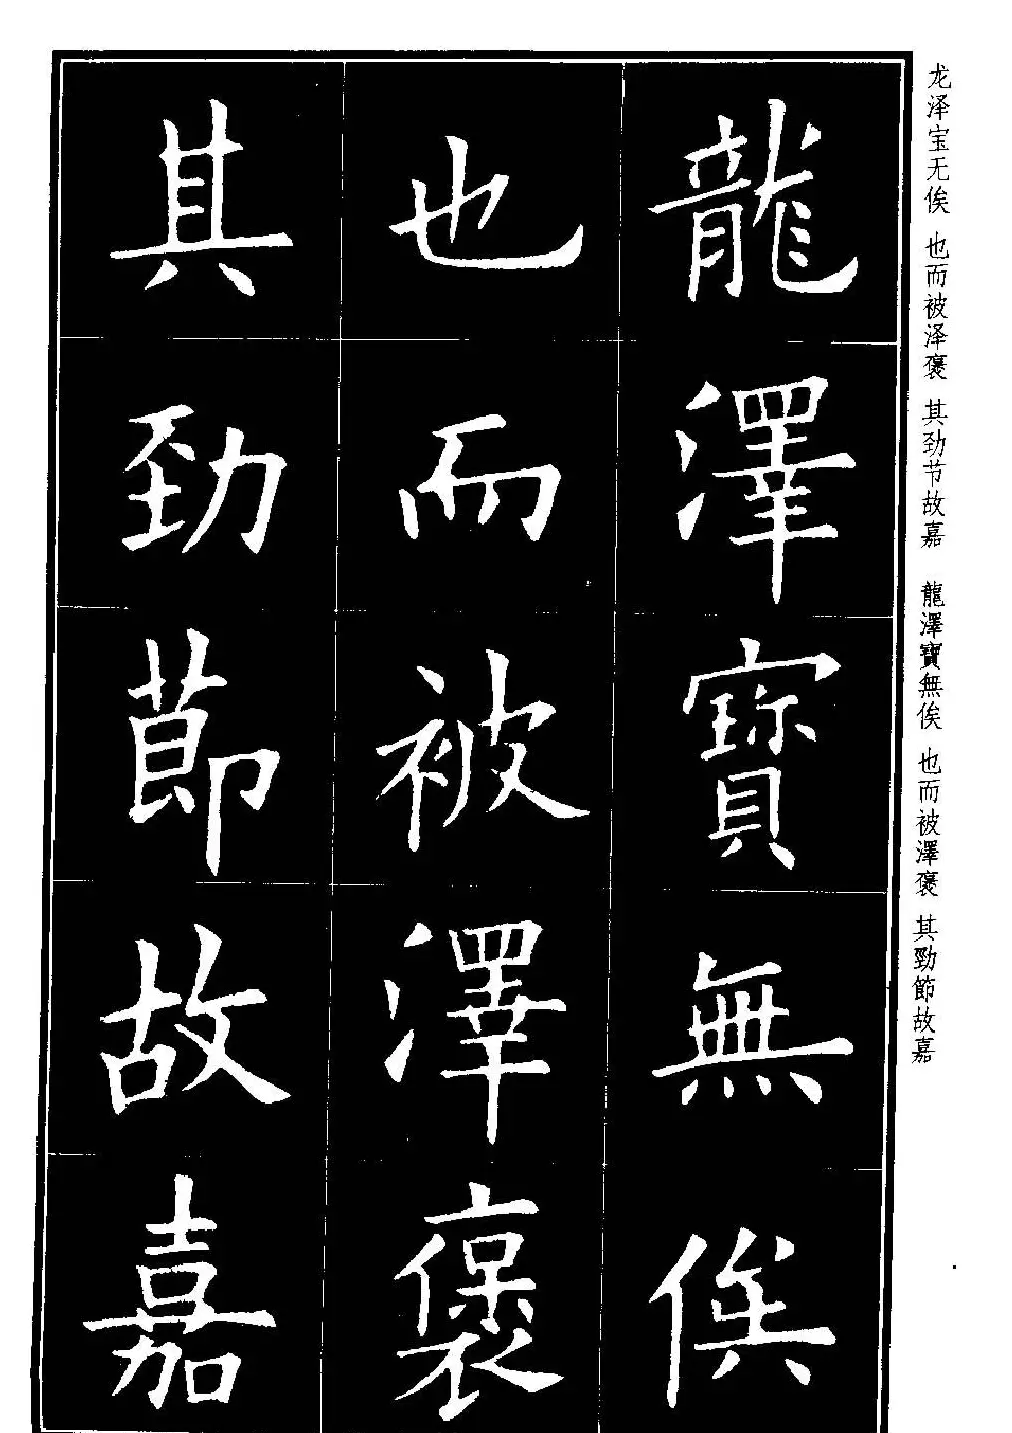 龙泽宝无俟 也而被泽褒 其劲节故嘉 龍澤寶無俟 也而被澤褒 其勁節故嘉
龍澤寶無俟
也而被澤褒
其勁節故嘉